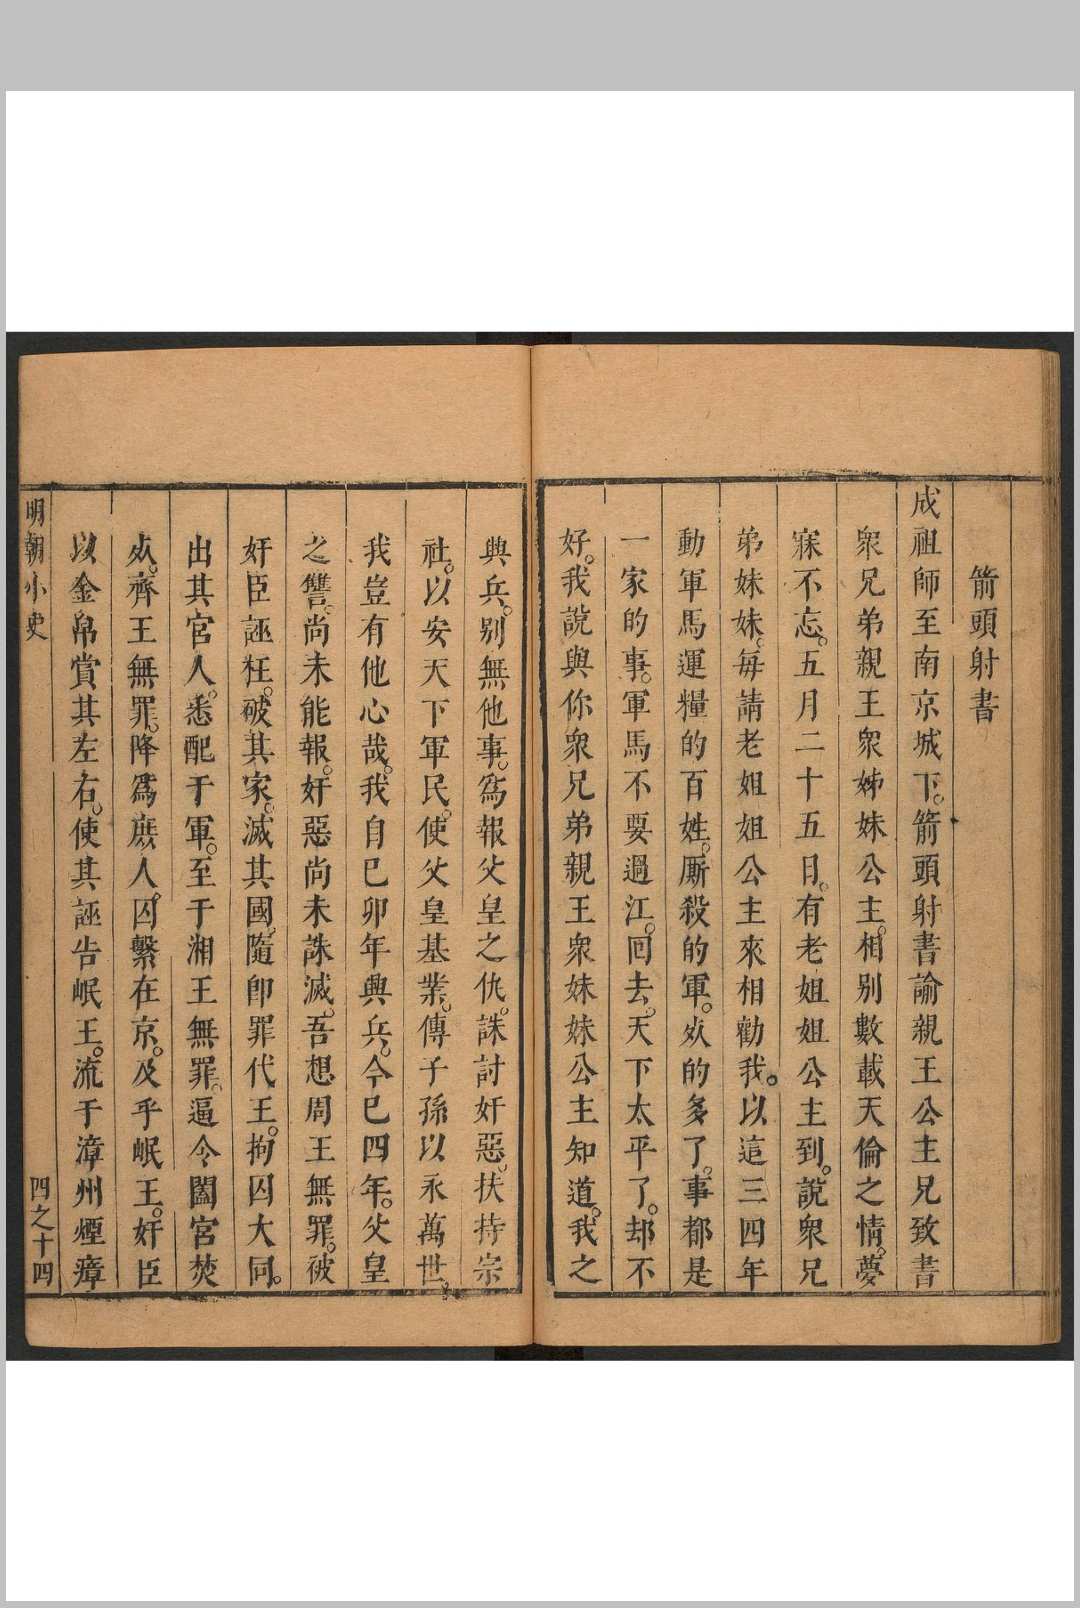 箭頭射書
成祖師至南京城下。箭頭射書諭親王公主兄致書
衆兄弟親王衆姊妹公主。相別數載天倫之情。夢
寐不忘。五月二十五日。有老姐姐公主到。說衆兄
弟妹妹。每請老姐姐公主來相勸我。以這三四年
動軍馬運糧的百姓。厮殺的軍。死的多了。事都是
一家的事。軍馬不要過江。回去。天下太平了。却不
好。我說與你衆兄弟親王衆妹妹公主知道。我之
興兵。別無他事。爲報父皇之仇。誅討奸惡。扶持宗
社。以安天下軍民。使父皇基業。傳子孫以永萬世。
我豈有他心哉。我自巳卯年興兵。今巳四年。父皇
之讐。尚未能報。奸惡尚未誅滅。吾想周王無罪。被
奸臣誣枉。破其家。滅其國。隨卽罪代王。拘囚大同。
出其宮人。悉配于軍。至于湘王無罪。逼令闔宮焚
死。齊王無罪。降爲庶人。囚繫在京。及乎岷王。奸臣
以金帛賞其左右。使其誣告岷王。流于漳州煙瘴
明朝小史
四之十四